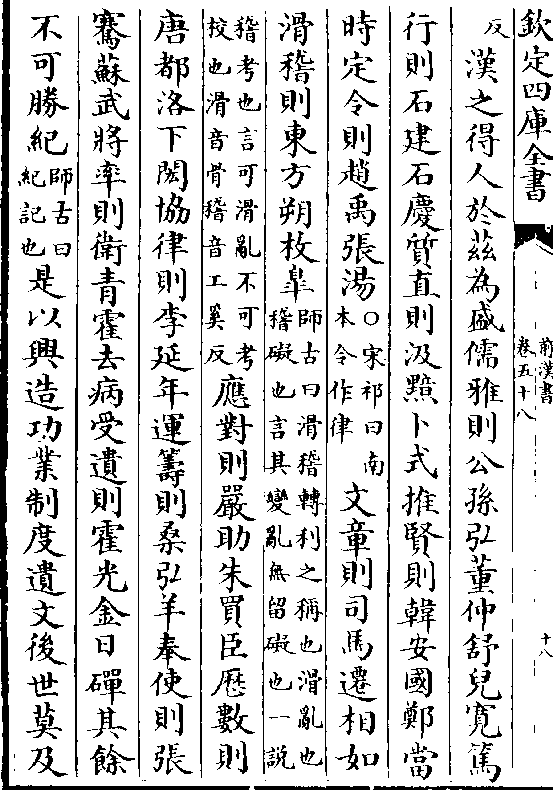 欽定四庫全書
前漢書
卷五十八
十八
反漢之得人於茲為盛儒雅則公孫弘董仲舒兒寬篤
行則石建石慶質直則汲黯卜式推賢則韓安國鄭當
時定令則趙禹張湯○宋祁曰南本令作律文章則司馬遷相如
滑稽則東方朔枚臯師古曰滑稽轉利之稱也滑亂也稽礙也言其變亂無留礙也一説
稽考也言可滑亂不可考校也滑音骨稽音工奚反應對則嚴助朱買臣厯數則
唐都洛下閎協律則李延年運籌則桑弘羊奉使則張
騫蘇武將率則衛青霍去病受遺則霍光金日磾其餘
不可勝紀師古曰紀記也是以興造功業制度遺文後世莫及